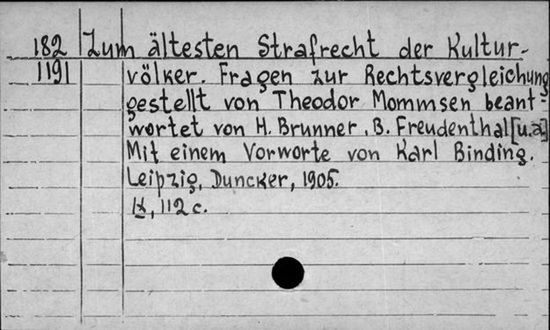 182 Zum ältesten Strafrecht der Kultur-
1191 völker. Fragen zur Rechtsvergleichung
gestellt von Theodor Mommsen beant-
wortet von H. Brunner, B. Freudenthal [u.a]
Mit einem Vorworte von Karl Binding.
Leipzig, Duncker, 1905.
IX, 112 c.